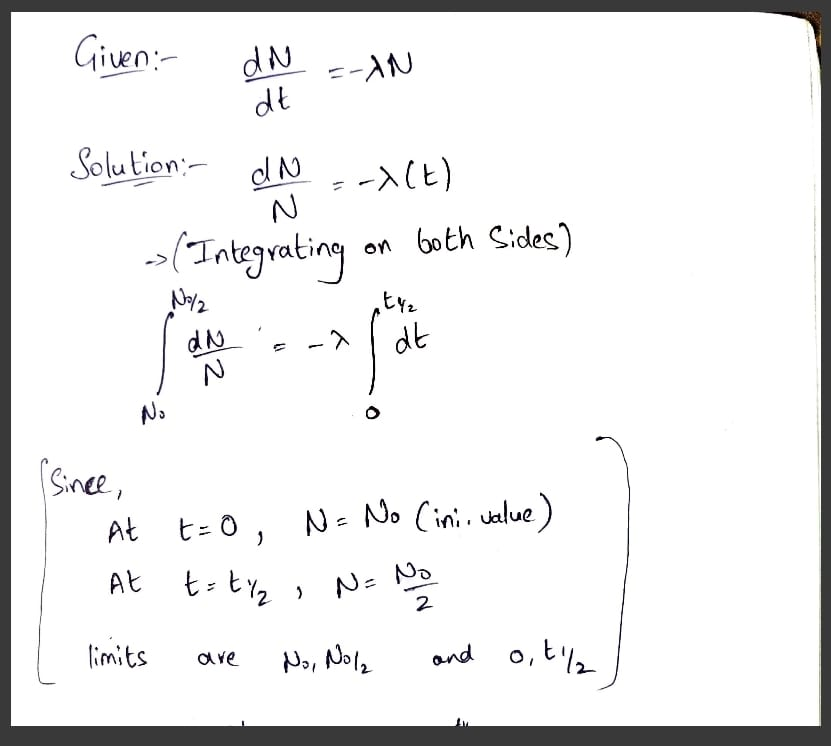 Given:- dN/dt = -λN
Solution:- dN/N = -λ(t)
->(Integrating on both Sides)
∫_{N₀}^{N₀/2} dN/N = -λ ∫_{0}^{t½} dt
[Since,
At t=0, N = N₀ (ini. value)
At t = t½, N = N₀/2
limits are N₀, N₀/2 and 0, t1/2]